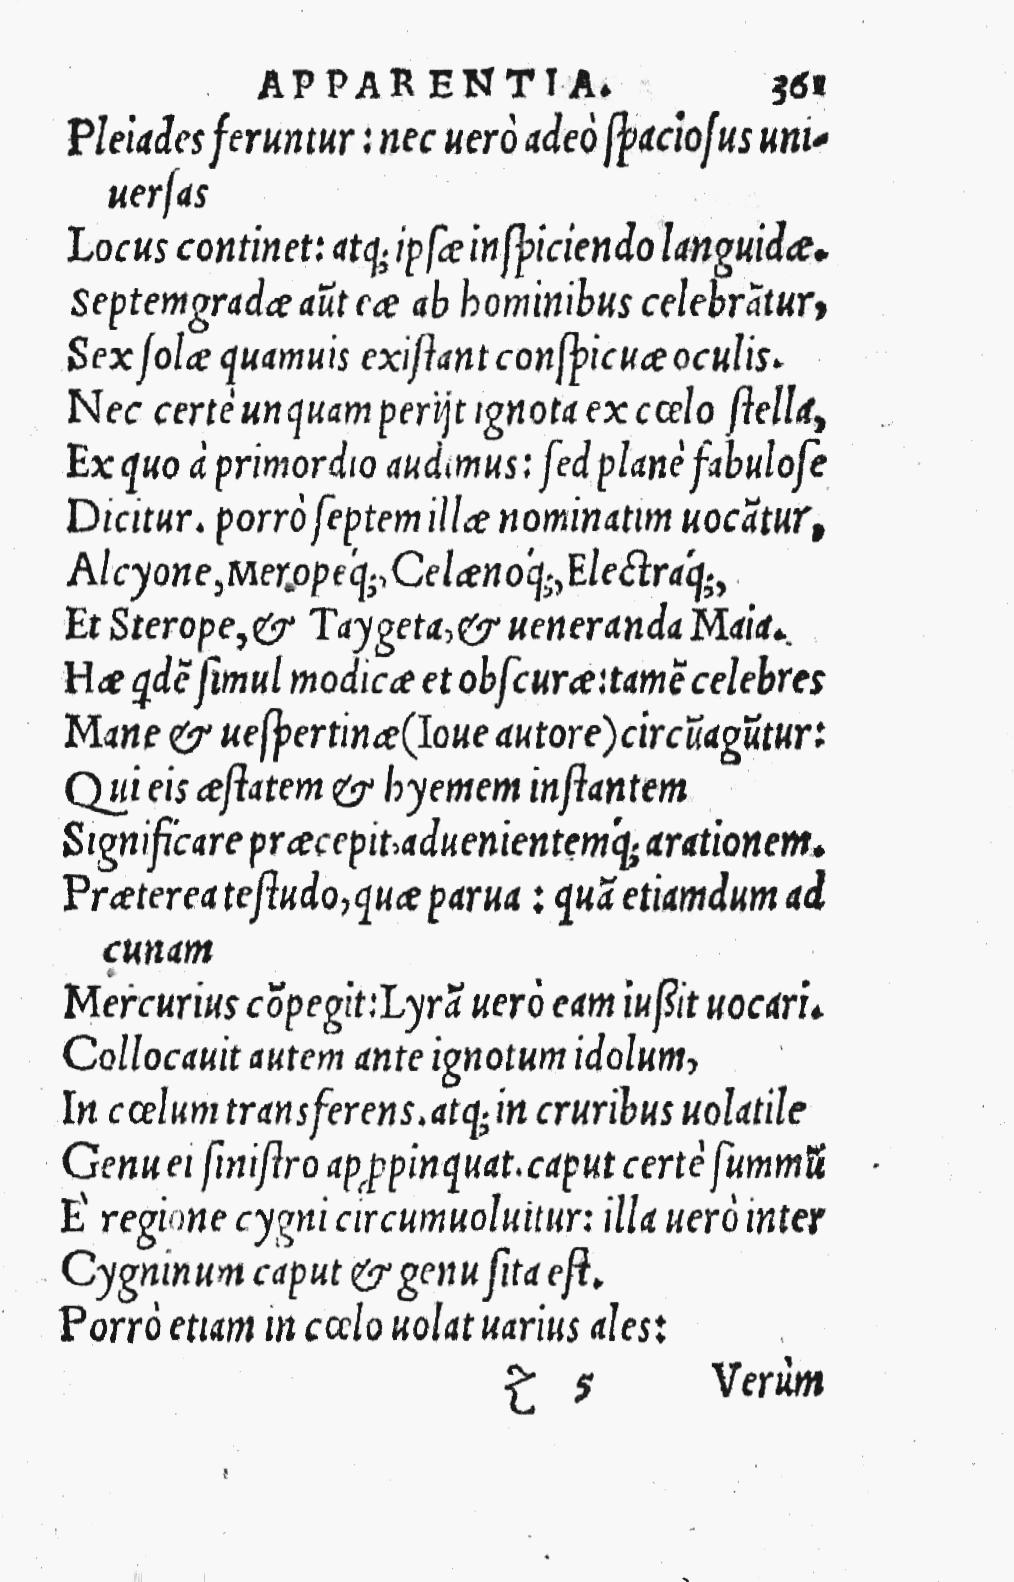 APPARENTIA. 361
Pleiades feruntur: nec uerò adeò ſpacioſus uni-
uerſas
Locus continet: atq; ipſæ inſpiciendo languidæ.
Septemgradæ aūt eæ ab hominibus celebrātur,
Sex ſolæ quamuis exiſtant conſpicuæ oculis.
Nec certè unquam perijt ignota ex cœlo ſtella,
Ex quo à primordio audimus: ſed planè fabuloſe
Dicitur. porrò ſeptem illæ nominatim uocātur,
Alcyone, Meropeq́;, Celænoq́;, Electraq́;,
Et Sterope, & Taygeta, & ueneranda Maia.
Hæ qdẽ ſimul modicæ et obſcuræ: tamẽ celebres
Mane & ueſpertinæ (Ioue autore) circūagūtur:
Qui eis æſtatem & hyemem inſtantem
Significare præcepit, aduenientemq́; arationem.
Præterea teſtudo, quæ parua: quā etiamdum ad
cunam
Mercurius cōpegit: Lyrā uerò eam iußit uocari.
Collocauit autem ante ignotum idolum,
In cœlum transferens. atq; in cruribus uolatile
Genu ei ſiniſtro apꝓpinquat. caput certè ſummū
E` regione cygni circumuoluitur: illa uerò inter
Cygninum caput & genu ſita eſt.
Porrò etiam in cœlo uolat uarius ales:
ꝛ 5 Verùm